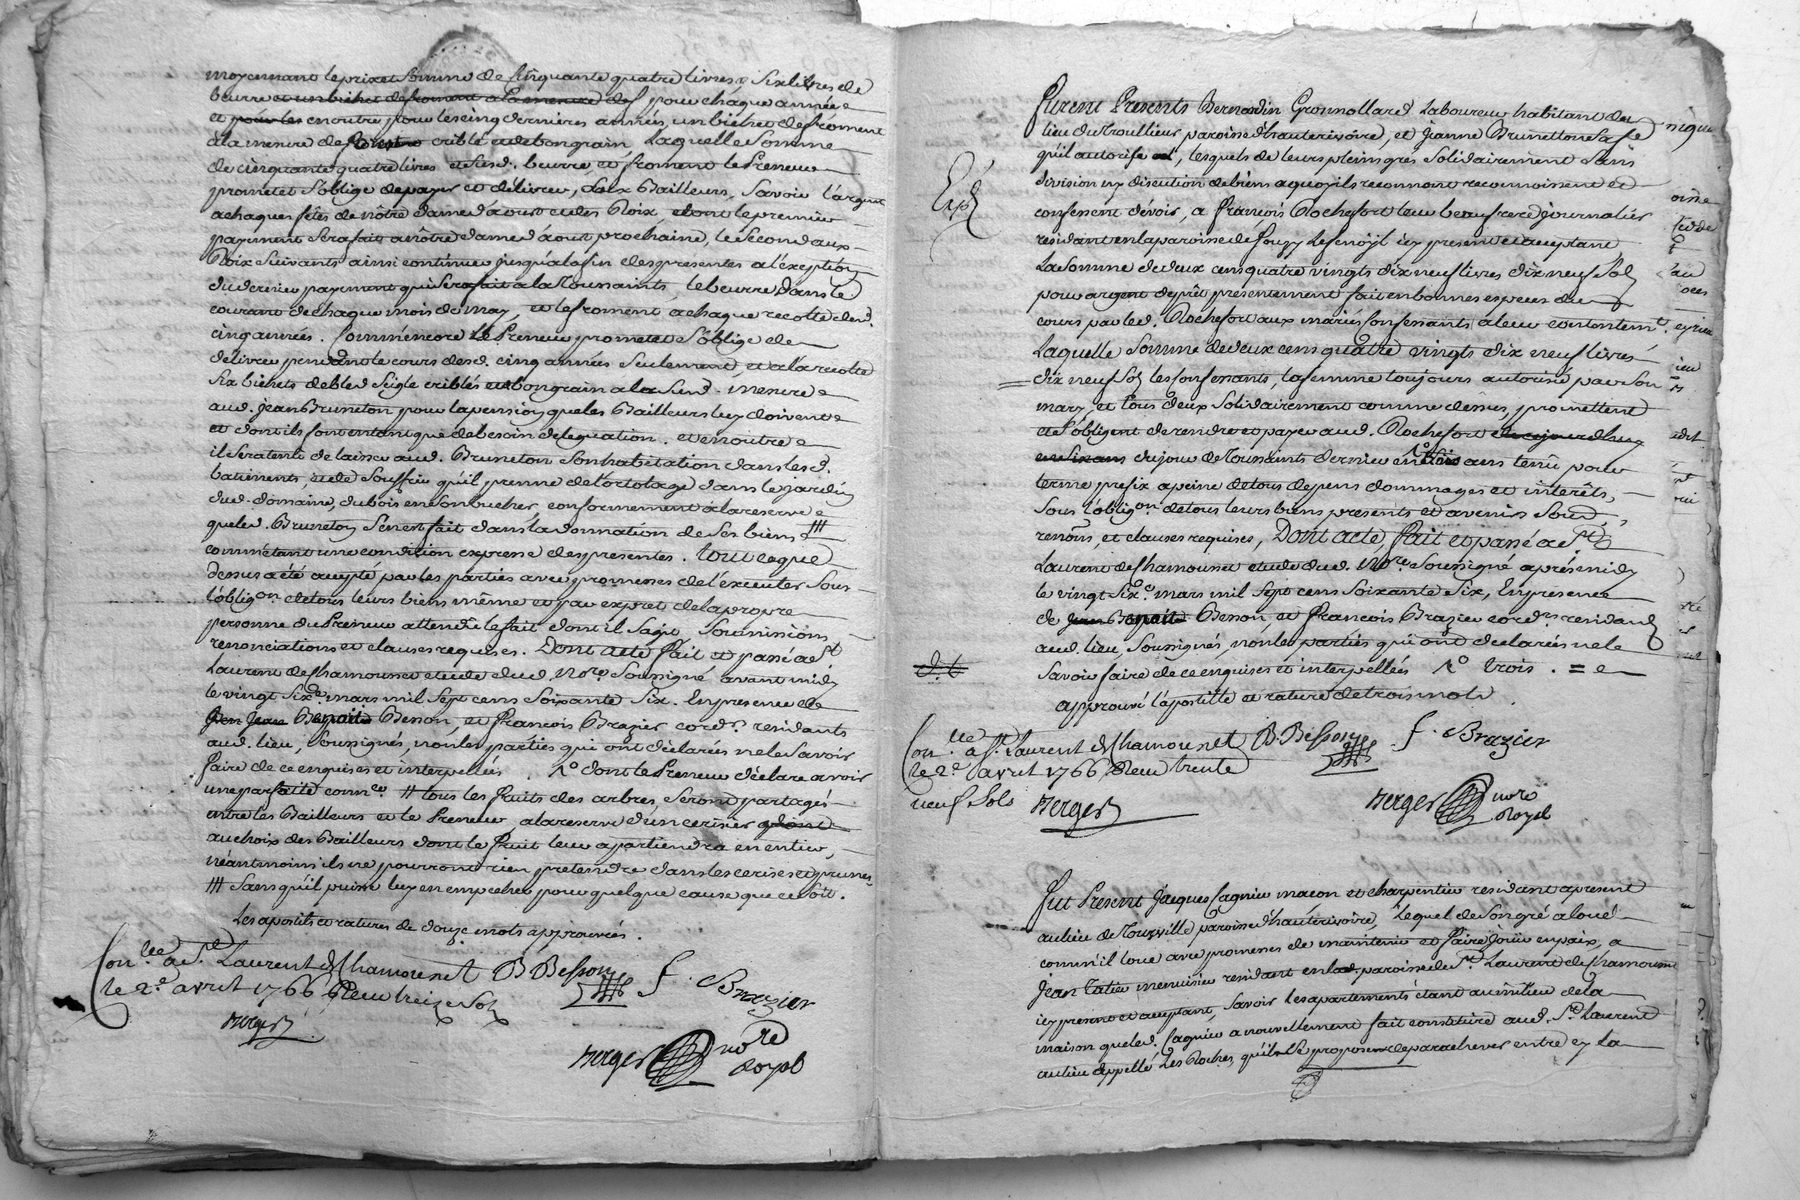 moyennant le prix et somme de cinquante quatre livres, six livres de
beurre et un bichet de froment a la mesure de pour chaque année
et pour les en outre pour les cinq dernieres années, un bichet de froment
à la mesure de criblé et de bon grain, Laquelle somme
de cinquante quatre livres et susd. beurre et froment le Preneur
promet et s'oblige de payer et délivrer, aux Bailleurs, Savoir l'argent
a chaques fêtes de nôtre dame d'aout et des Rois, dont le premier
payment sera fait a nôtre dame d'aout prochaine, le second aux
Rois suivants ainsi continuer jusqu'a la fin des presentes a l'exeption
du dernier payment qui sera fait a la Toussaints, le beurre dans le
courant de chaque mois de may, et le froment a chaque recolte desd.
cinq années. Comm'encore le Preneur promet et s'oblige de
délivrer pendant le cours desd. cinq années seulement, et a la recolte
six bichets de bled seigle criblés et bon grain a la susd. mesure
aud. jean Bruneton pour la pension que les Bailleurs luy doivent
et dont ils font entant que de besoin delegation. et en outre
il sera tenû de laisser aud. Bruneton son habitation dans lesd.
batiments, et de souffrir qu'il prenne de l'ortolage dans le jardin
dud. domaine, du bois en son bucher, conformement a la reserve
que led. Bruneton s'en est fait dans la donnation de ses biens #
comm'étant une condition expresse des presentes. Tout ce que
dessus a été accepté par les parties avec promesses de l'executer sous
l'oblig.on de tous leurs biens même et par expret de la propre
personne du Preneur attendû le fait dont il s'agit, soumissions,
renonciations et clauses requises. Dont acte fait et passé a St
Laurent de Chamousset etude dud. No.re soussigné avant midy
le vingt six.e mars mil sept cens soixante six. En presence de
Jean Benoit Besson, et François Brazier cord.rs residants
aud. lieu, soussignés, non les parties qui ont déclarés ne le savoir
faire de ce enquises et interpellées. No dont le Preneur déclare avoir
une parfaite conn.ce # tous les fruits des arbres, seront partagés
entre les Bailleurs et le Preneur, a la reserve d'un cerisier
au choix des Bailleurs dont le fruit leur apartiendra en entier,
néantmoins ils ne pourront rien pretendre dans les cerises et prunes,
# sans qu'il puisse luy en empecher pour quelque cause que ce soit.
Les apostils et ratures de douze mots approuvées.
Con.llé a St. Laurent de Chamousset B. Besson F. Brazier
le 2.e avril 1766. Reçu treize sols
Berger
Berger no.re Royal
Furent Presents Bernardin Gromollard Laboureur habitant du
lieu du Noullieux paroisse d'hauterivoire, et Jeanne Brunetton sa fe
qu'il autorise, lesquels de leurs pleins grés solidairement sans
division ny discution de biens a quoy ils renoncent reconnoissent et
confessent dévoir, a François Rochefort leur beaufrere journalier
residant en la paroisse de icy present et acceptant
La somme de deux cens quatre vingts dix neuf livres dix neuf sols
pour argent de prêt presentement fait en bonnes especes du
cours par led. Rochefort aux mariés confessants a leur contentem.t
Laquelle somme de deux cens quatre vingts dix neuf livres
dix neuf sols les confessants, la femme toujours autorisé par son
mary, et tous deux solidairement comme dessus, promettent
et s'obligent de rendre et payer aud. Rochefort de ce jourdhuy
en six ans du jour de Toussaints dernier en trois ans tenû pour
terme prefix a peine de tous depens dommages et interêts,
sous l'oblig.on de tous leurs biens presents et avenir soum.
renon.s, et clauses requises, Dont acte, fait et passé a St
Laurent de Chamousset etude dud. No.re soussigné aprés midy
le vingt six.e mars mil sept cens soixante six, En presence
de Jean Benoit Besson, et François Brazier cord.rs residants
aud. lieu, soussignés, non les parties qui ont déclarés ne le
savoir faire de ce enquises et interpellées No trois. =
approuvé l'apostille et rature de trois mots
Con.llé a St. Laurent de Chamousset B. Besson F. Brazier
le 2.e avril 1766 Reçu trente
neuf sols Berger
Berger no.re Royal
Fut Present Jacques Cagnier macon et charpentier residant a present
au lieu de paroisse d'hauterivoire, Lequel de son gré a loué
comm'il loue avec promesses de maintenir et faire jouïr en paix, a
Jean menuisier residant en lad. paroisse de St. Laurent de Chamousset
icy present et acceptant, Savoir les apartements étant au milieu de la
maison que led. Cagnier a nouvellement fait construire aud. St. Laurent
au lieu appellé Les Roches, qu'il se propose de parachever entre cy La